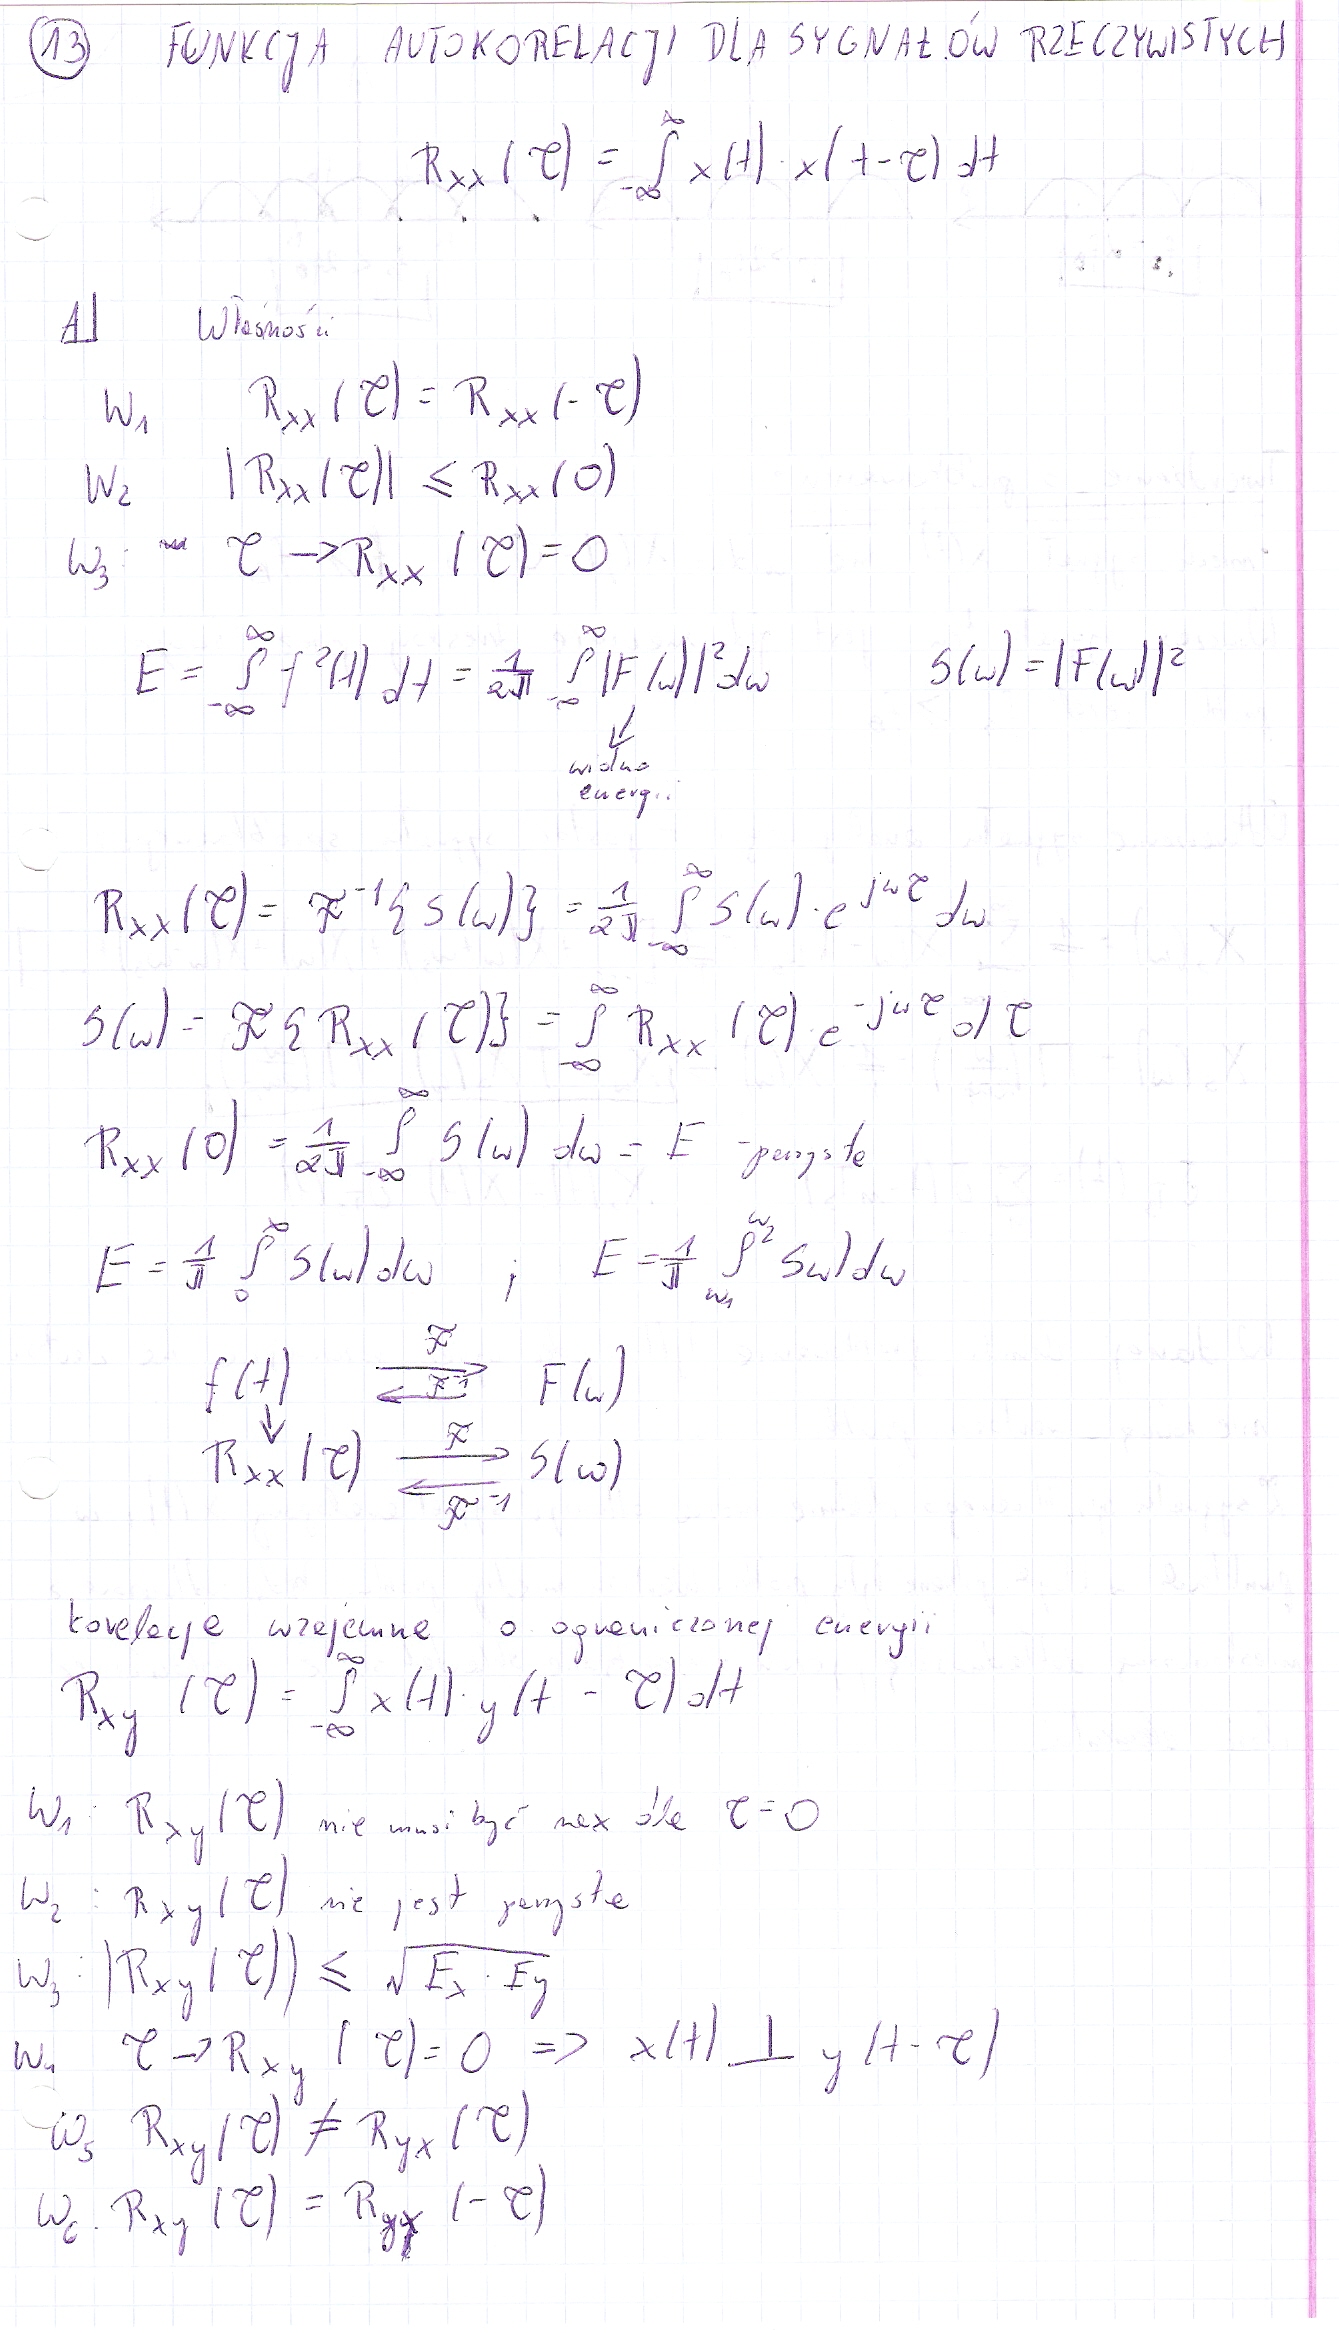 13 FUNKCJA AUTOKORELACJI DLA SYGNAŁÓW RZECZYWISTYCH
Rxx(τ) = ∫_{-∞}^{∞} x(t) · x(t-τ) dt
A Własności
W1 Rxx(τ) = Rxx(-τ)
W2 |Rxx(τ)| ≤ Rxx(0)
W3: τ → Rxx(τ) = 0
E = ∫_{-∞}^{∞} f²(t) dt = 1/2π ∫_{-∞}^{∞} |F(ω)|² dω S(ω) = |F(ω)|²
widmo
energii
Rxx(τ) = F⁻¹{S(ω)} = 1/2π ∫_{-∞}^{∞} S(ω) · e^{jωτ} dω
S(ω) = F{Rxx(τ)} = ∫_{-∞}^{∞} Rxx(τ) · e^{-jωτ} dτ
Rxx(0) = 1/2π ∫_{-∞}^{∞} S(ω) dω = E - parzysta
E = 1/π ∫_{0}^{∞} S(ω) dω ; E = 1/π ∫_{ω1}^{ω2} Sω) dω
f(t) ⇄ F(ω)
F
F⁻¹
↓
Rxx(τ) ⇄ S(ω)
F
F⁻¹
korelacja wzajemna o ograniczonej energii
Rxy(τ) = ∫_{-∞}^{∞} x(t) · y(t - τ) dt
W1: Rxy(τ) nie musi być max dla τ = 0
W2: Rxy(τ) nie jest parzysta
W3: |Rxy(τ)) ≤ √(Ex · Ey)
W4 τ → Rxy(τ) = 0 => x(t) ⊥ y(t-τ)
W5 Rxy(τ) ≠ Ryx(τ)
W6. Rxy(τ) = Ryx(-τ)